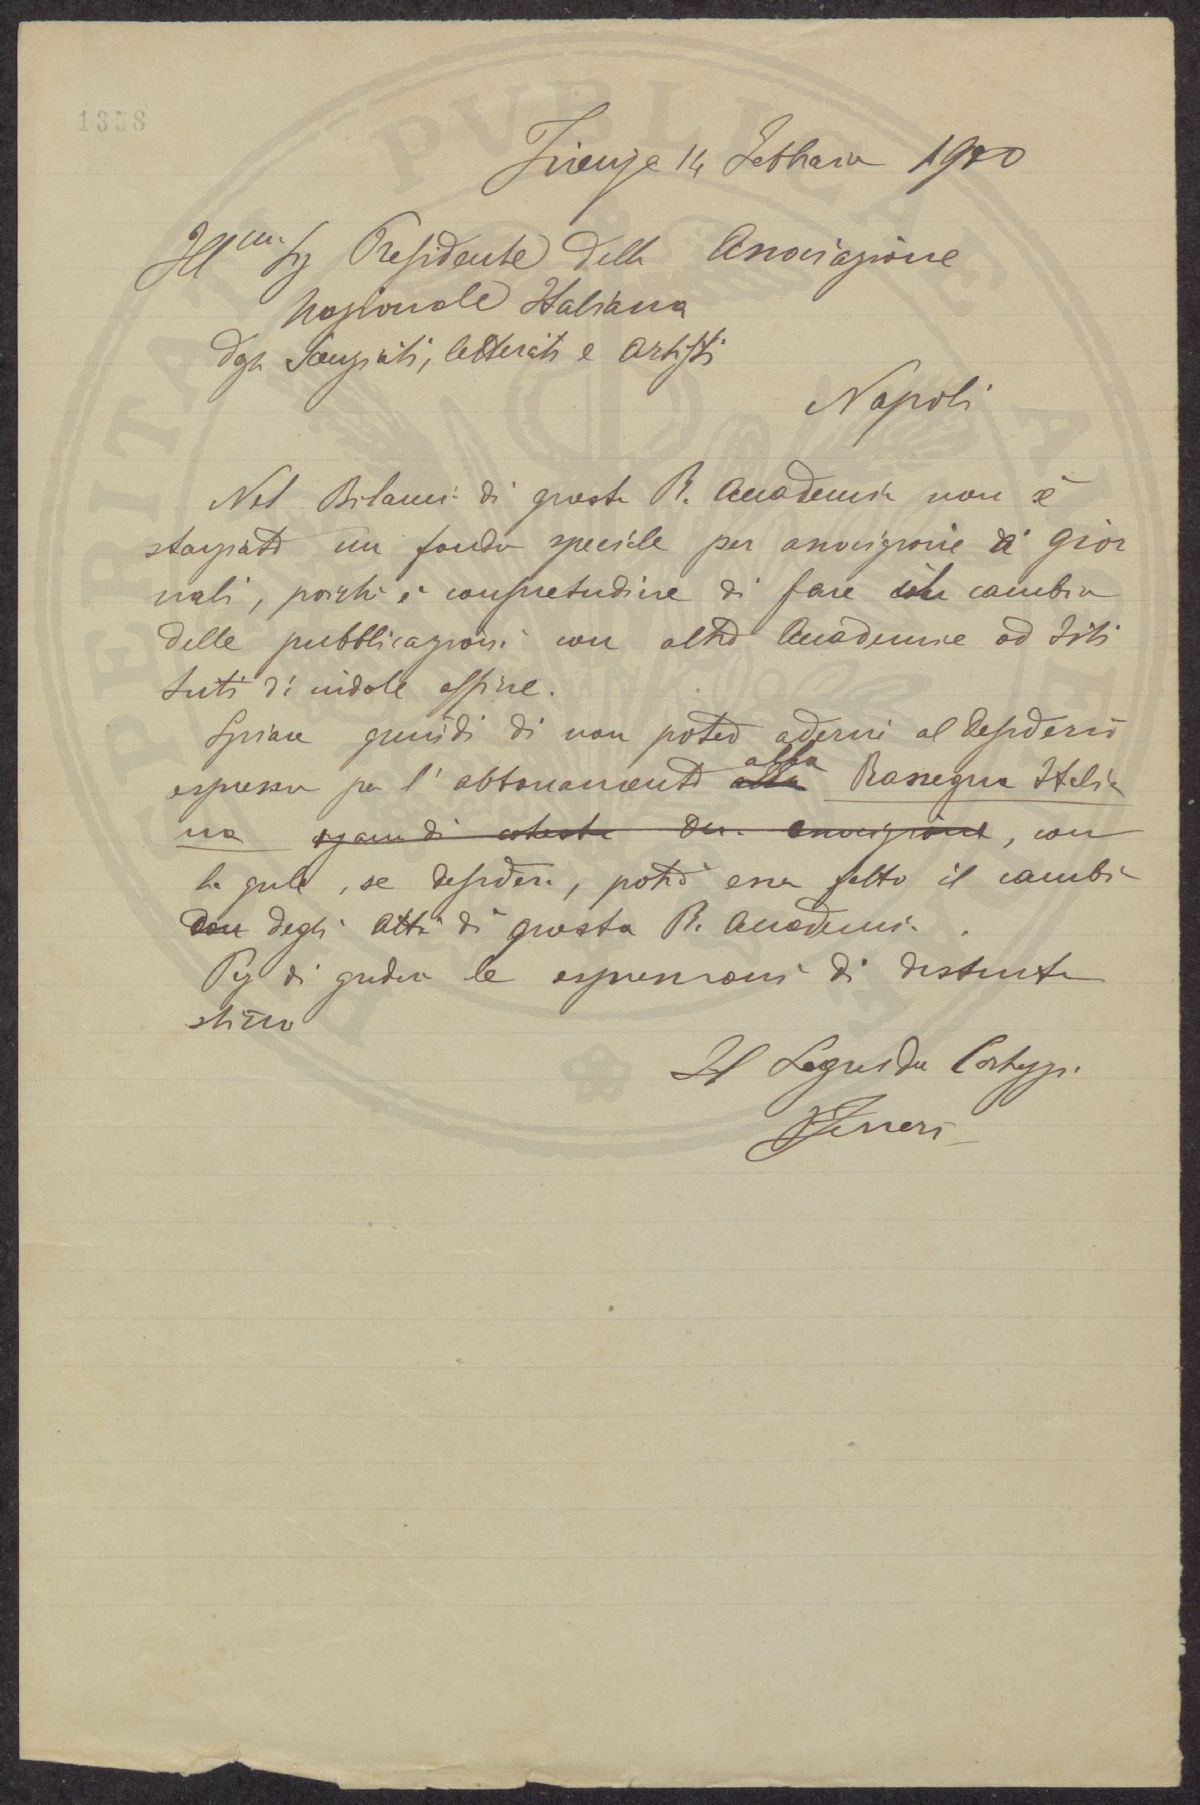 1358
Firenze 14 Febbraio 1900
Ill.mo Sig Presidente della Associazione
Nazionale Italiana
degli Scienziati, letterati e Artisti
Napoli
Nel Bilancio di questa R. Accademia non è
stanziato un fondo speciale per associazione a gior
nali, poichè è consuetudine di fare il cambio
delle pubblicazioni con altre Accademie od Isti
tuti di indole affine.
Spiace quindi di non poter aderire al desiderio
espresso per l'abbonamento alla
alla Rassegna Italia
na organo di cotesta On. associazione, con
la quale, se desidera, potrà esser fatto il cambio
con degli Atti di questa R. Accademia.
di gradire le espressioni di distinta
stima
Il Segretario